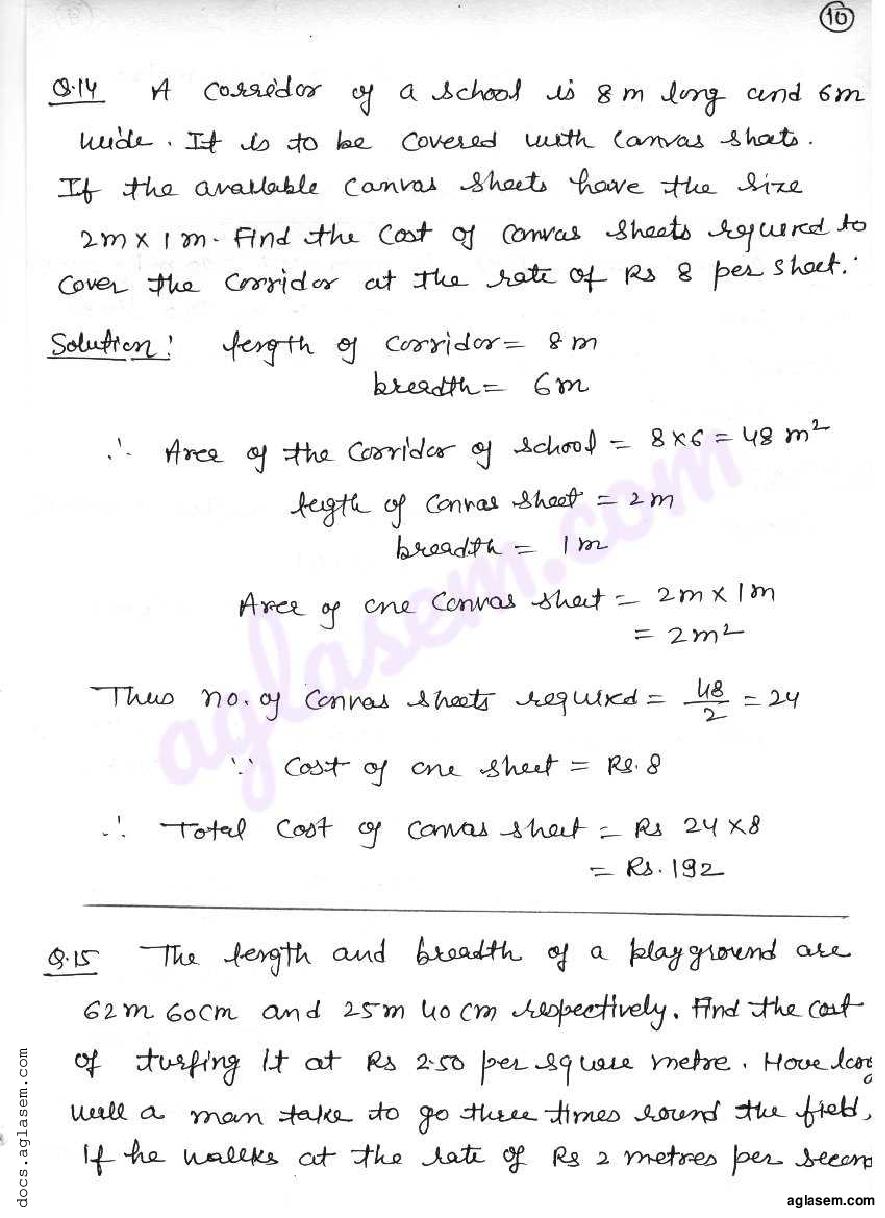 10
Q.14 A corridor of a school is 8 m long and 6m
wide. It is to be covered with canvas sheets.
If the available canvas sheets have the size
2m × 1 m. Find the cost of canvas sheets required to
cover the corridor at the rate of Rs 8 per sheet.
Solution: length of corridor = 8 m
breadth = 6m
∴ Area of the corridor of school = 8×6 = 48 m²
legth of canvas sheet = 2m
breadth = 1m
Area of one canvas sheet = 2m × 1m
= 2m²
Thus no. of canvas sheets required = 48/2 = 24
∵ Cost of one sheet = Rs. 8
∴ Total cost of canvas sheet = Rs 24×8
= Rs. 192
Q.15 The length and breadth of a playground are
62m 60cm and 25m 40 cm respectively. Find the cost
of turfing it at Rs 2.50 per square metre. How long
will a man take to go three times round the field,
if he walks at the rate of Rs 2 metres per secon
aglasem.com
docs.aglasem.com
aglasem.com